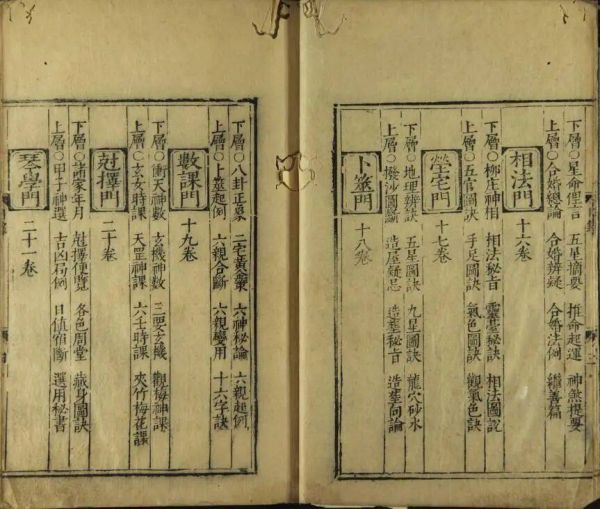 上層○合婚總論 合婚辨疑 合婚法例 繼善篇
下層○星命俚言 五星摘要 推命起運 神煞提要
相法門 十六卷
上層○五官圖訣 手足圖訣 氣色圖訣 觀氣色訣
下層○柳庄神相 相法秘旨 靈臺秘訣 相法圖說
塋宅門 十七卷
上層○撥沙圖 造屋疑忌 造塟秘旨 造塟向論
下層○地理辨訣 五星圖訣 九星圖訣 龍穴砂水
卜筮門 十八卷
上層○上筮起例 六親合斷 六親變用 十六字訣
下層○八卦正 二宅黃 六神秘論 六親起例
數課門 十九卷
上層○玄女時課 天罡神課 六壬時課 夾竹梅花課
下層○衝天神數 玄機神數 三要玄機 觀梅神課
尅擇門 二十卷
上層○甲子神選 吉凶局例 日值宿斷 選用秘書
下層○諸家年月 尅擇便覽 各色周堂 藏身圖訣
琴學門 二十一卷